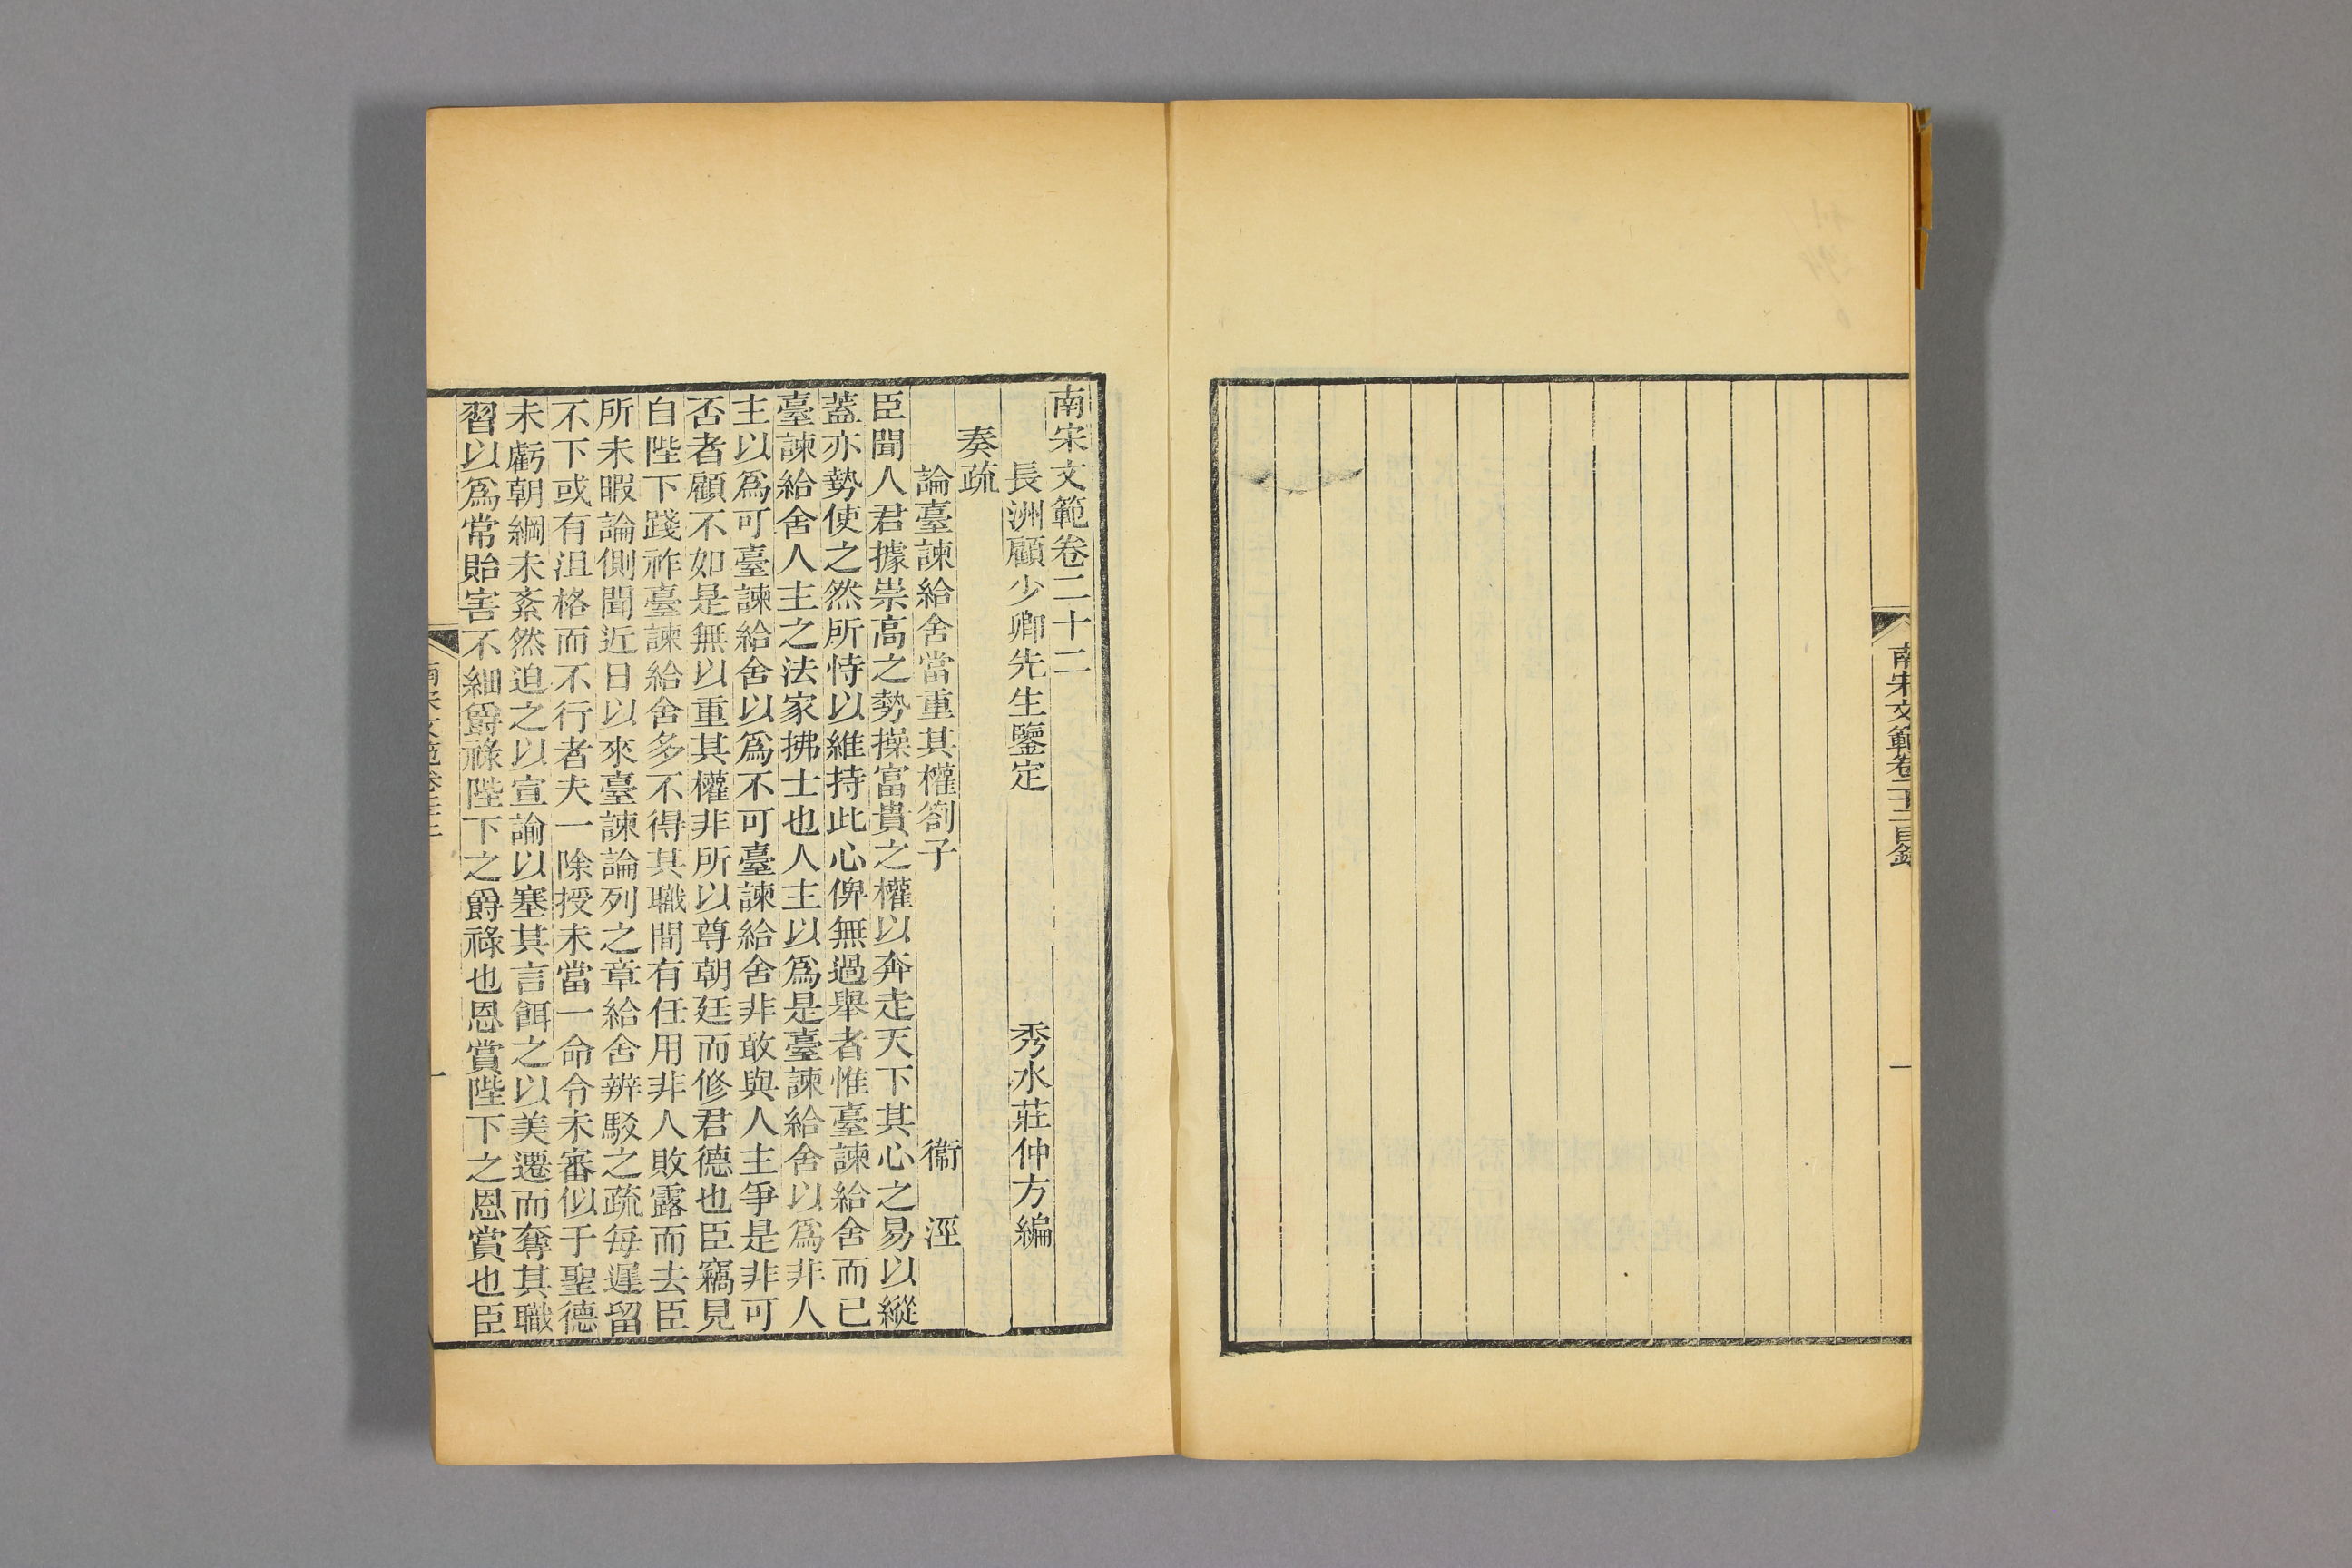 南宋文範卷二十二目錄
一
南宋文範卷二十二
長洲顧少卿先生鑒定　秀水莊仲方編
奏疏
論臺諫給舍當重其權劄子　衞涇
臣聞人君據崇高之勢操富貴之權以奔走天下其心之易以縱
蓋亦勢使之然所恃以維持此心俾無過舉者惟臺諫給舍而已
臺諫給舍人主之法家拂士也人主以爲是臺諫給舍以爲非人
主以爲可臺諫給舍以爲不可臺諫給舍非敢與人主爭是非可
否者顧不如是無以重其權非所以尊朝廷而修君德也臣竊見
自陛下踐祚臺諫給舍多不得其職間有任用非人敗露而去臣
所未暇論側聞近日以來臺諫論列之章給舍辨駁之疏每遲留
不下或有沮格而不行者夫一除授未當一命令未審似于聖德
未虧朝綱未紊然迫之以宣諭以塞其言餌之以美遷而奪其職
習以爲常貽害不細爵祿陛下之爵祿也恩賞陛下之恩賞也臣
南宋文範卷二十二
一